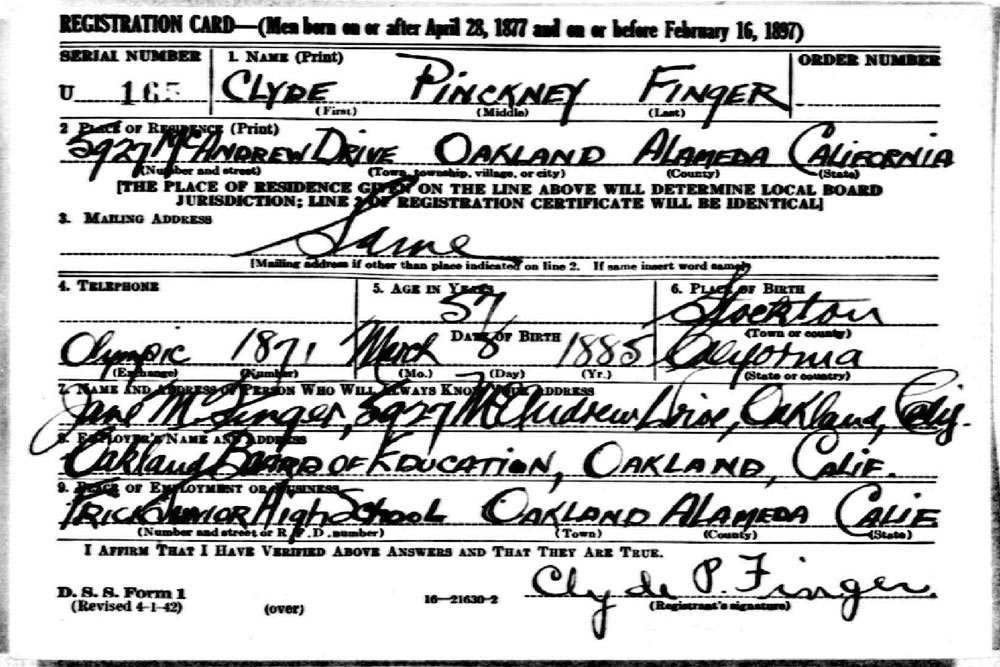 REGISTRATION CARD—(Men born on or after April 28, 1877 and on or before February 16, 1897)
SERIAL NUMBER 1. NAME (Print) ORDER NUMBER
U 165 CLYDE PINCKNEY FINGER
(First) (Middle) (Last)
2 PLACE OF RESIDENCE (Print)
5927 McANDREW DRIVE OAKLAND ALAMEDA CALIFORNIA
(Number and street) (Town, township, village, or city) (County) (State)
[THE PLACE OF RESIDENCE GIVEN ON THE LINE ABOVE WILL DETERMINE LOCAL BOARD
JURISDICTION; LINE 2 OF REGISTRATION CERTIFICATE WILL BE IDENTICAL]
3. MAILING ADDRESS
Same
[Mailing address if other than place indicated on line 2. If same insert word same]
4. TELEPHONE 5. AGE IN YEARS 6. PLACE OF BIRTH
57 Stockton
DATE OF BIRTH (Town or county)
Olympic 1871 March 8 1885 California
(Exchange) (Number) (Mo.) (Day) (Yr.) (State or country)
7. NAME AND ADDRESS OF PERSON WHO WILL ALWAYS KNOW YOUR ADDRESS
Jane M. Finger, 5927 McAndrew Drive, Oakland, Calif.
8. EMPLOYER'S NAME AND ADDRESS
Oakland BOARD OF EDUCATION, OAKLAND, CALIF.
9. PLACE OF EMPLOYMENT OR BUSINESS
FRICK JUNIOR HIGH SCHOOL OAKLAND ALAMEDA CALIF
(Number and street or R. F. D. number) (Town) (County) (State)
I AFFIRM THAT I HAVE VERIFIED ABOVE ANSWERS AND THAT THEY ARE TRUE.
Clyde P. Finger.
D. S. S. Form 1
(Revised 4-1-42) (over) 16—21630-2 (Registrant's signature)